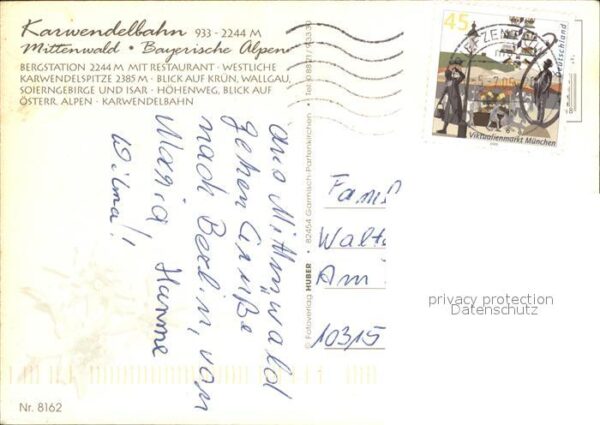 Karwendelbahn 933 - 2244 M
Mittenwald · Bayerische Alpen
BERGSTATION 2244 M MIT RESTAURANT · WESTLICHE
KARWENDELSPITZE 2385 M · BLICK AUF KRÜN, WALLGAU,
SOIERNGEBIRGE UND ISAR · HÖHENWEG, BLICK AUF
ÖSTERR. ALPEN · KARWENDELBAHN
aus Mittenwald
gehen Grüße
nach Berlin, von
Maria Hanne
Wilma!!
© Fotoverlag HUBER · 82454 Garmisch-Partenkirchen
45
Deutschland
Viktualienmarkt München
Fami
Walt
Am
10315
privacy protection
Datenschutz
Nr. 8162